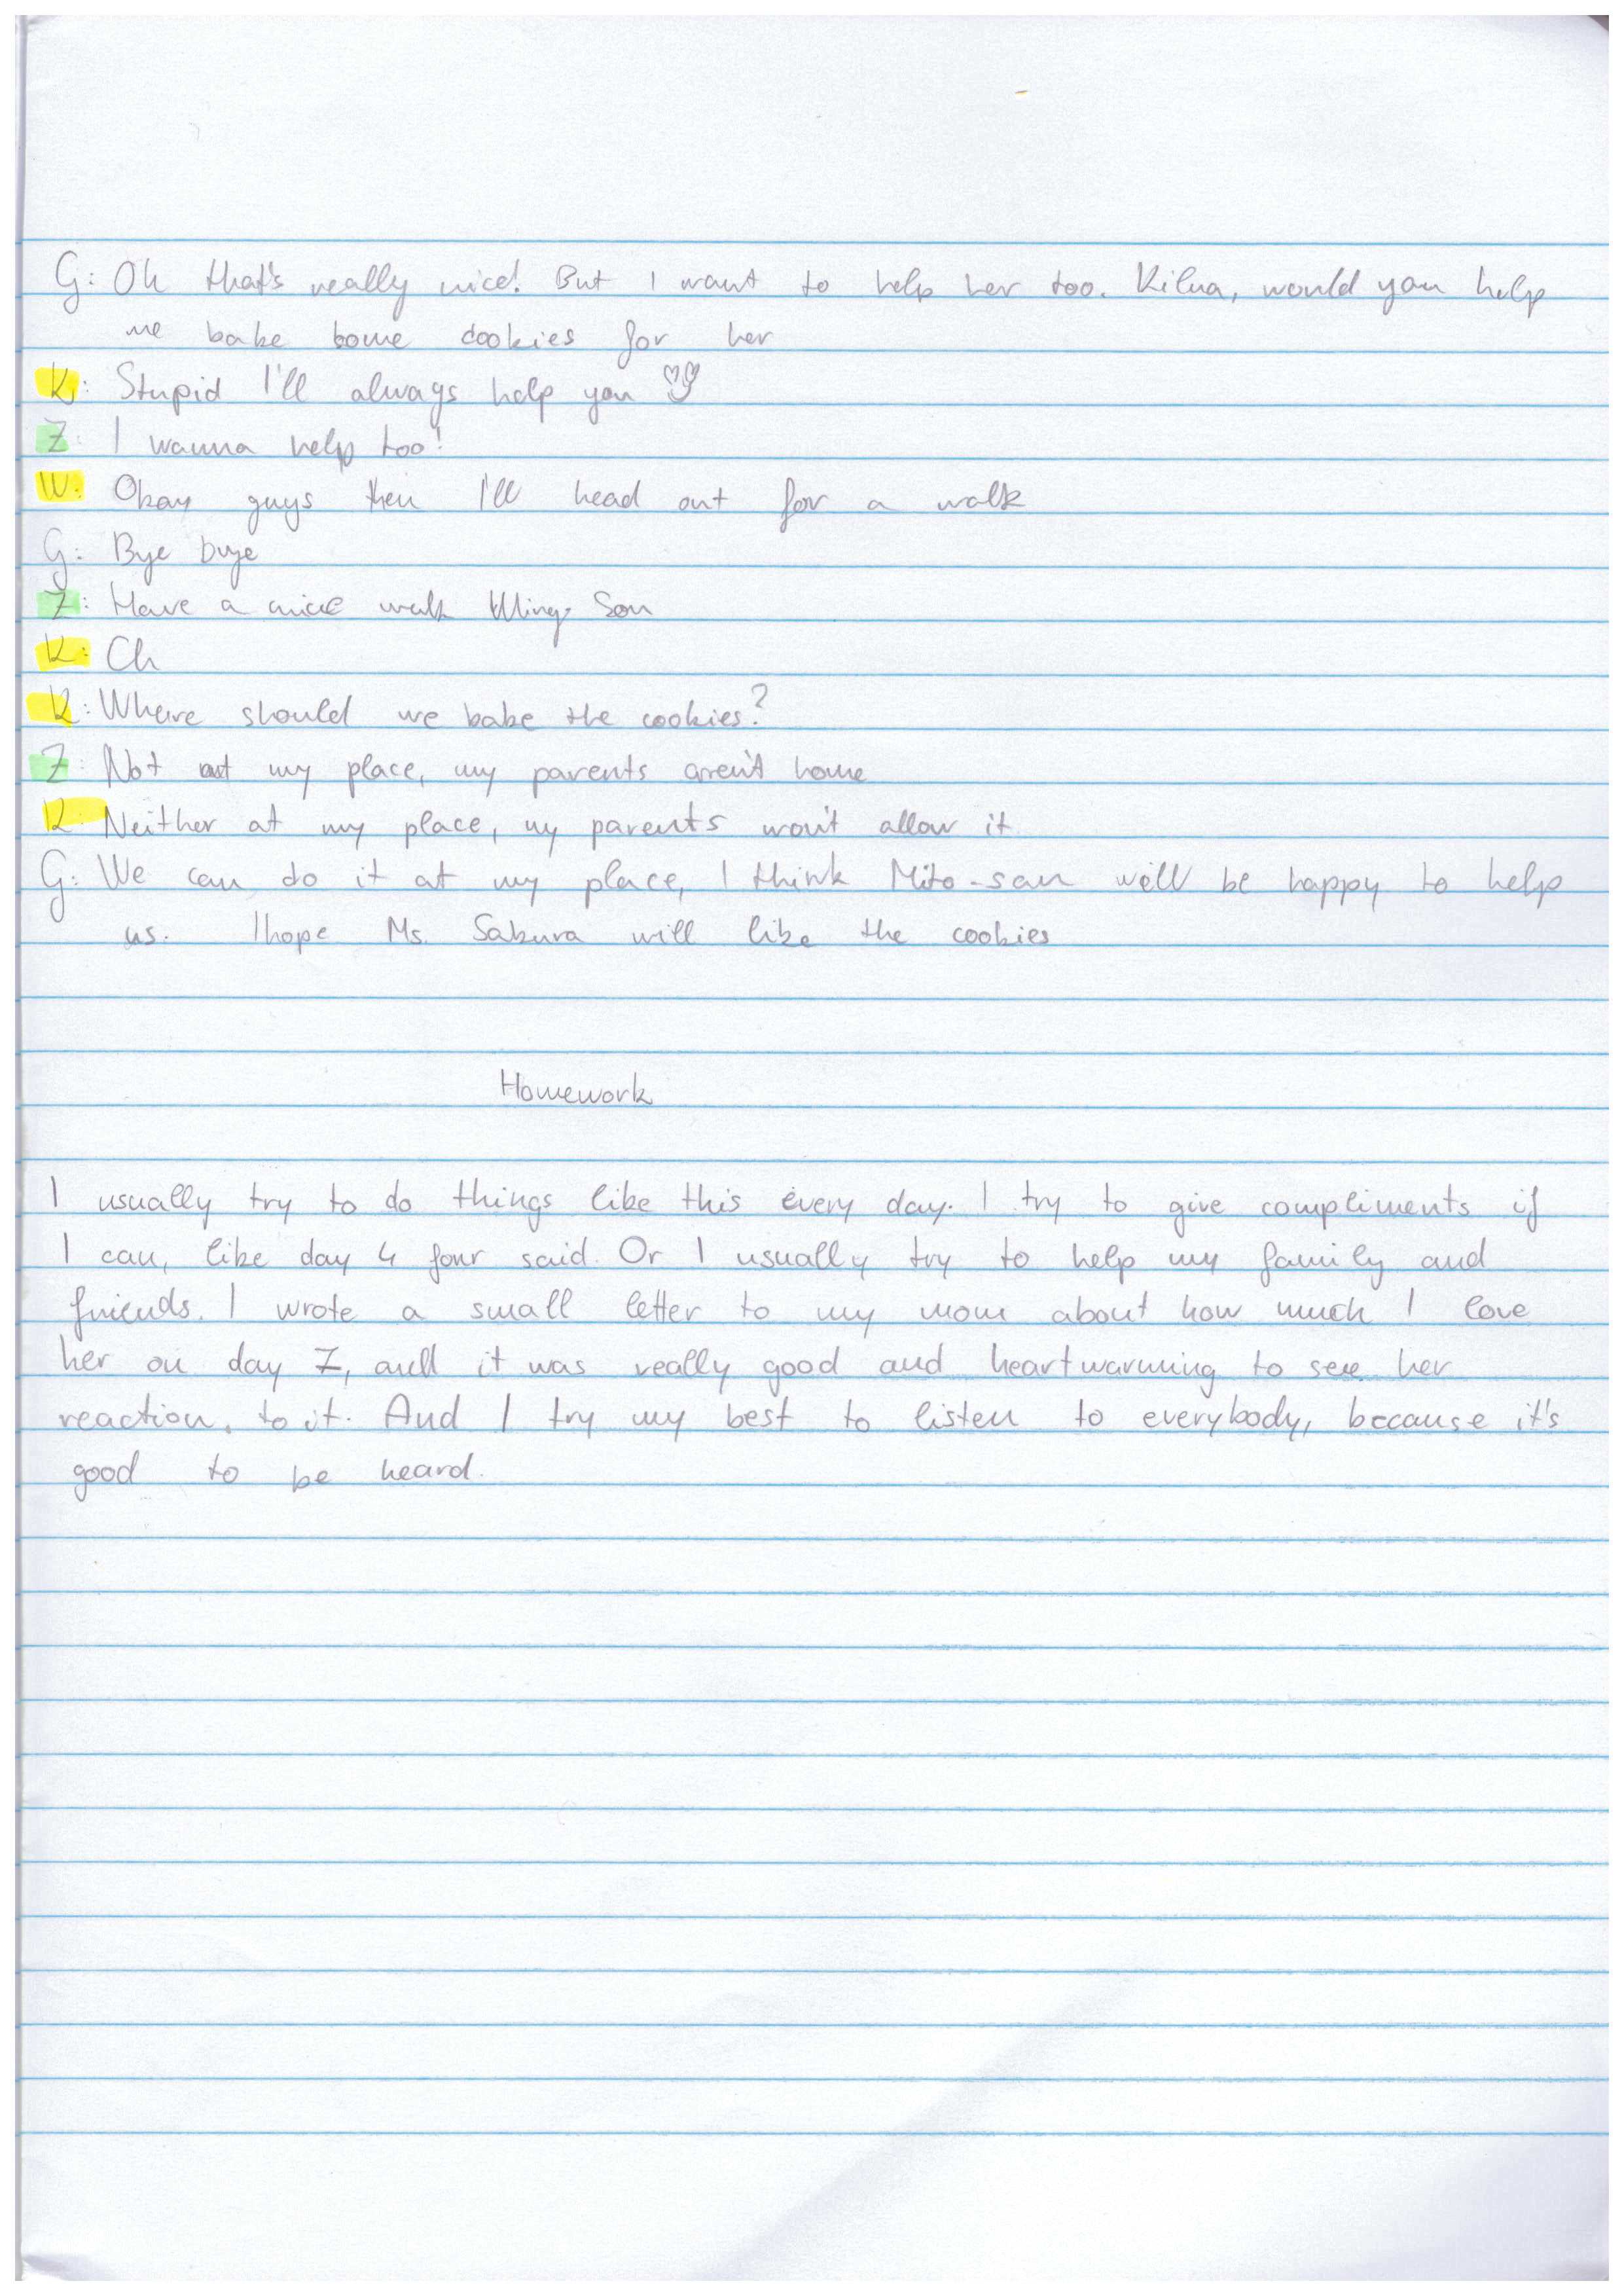 G: Oh that's really nice! But I want to help her too. Kilua, would you help
me bake some cookies for her
K: Stupid I'll always help you
Z: I wanna help too!
W: Okay guys then I'll head out for a walk
G: Bye bye
Z: Have a nice walk Wing-San
K: Ch
K: Where should we bake the cookies?
Z: Not at my place, my parents aren't home
K: Neither at my place, my parents won't allow it
G: We can do it at my place, I think Mito-san will be happy to help
us. I hope Ms. Sakura will like the cookies
Homework
I usually try to do things like this every day. I try to give compliments if
I can, like day 4 four said. Or I usually try to help my family and
friends. I wrote a small letter to my mom about how much I love
her on day 7, and it was really good and heartwarming to see her
reaction. to it. And I try my best to listen to everybody, because it's
good to be heard.